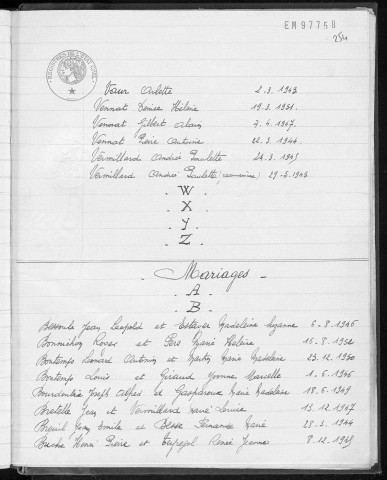 EM 97758
254
Vaur Arlette 2.3.1943
Vennat Denise Hélène 19.3.1951.
Vennat Gilbert Alain 7.4.1947.
Vennat Pierre Antoine 22.3.1944.
Vermillard Andrée Paulette 24.3.1943
Vermillard Andrée Paulette 29.5.1943
. W .
. X .
. Y .
. Z .
_ Mariages _
. A .
. B .
Bessoule Jean Léopold et Estever Madeleine Suzanne 6.8.1946
Bonnichon Roger et Fers Marie Hélène 16.8.1952
Bontemps Léonard Antonin et Marie Madeleine 23.12.1950
Bontemps Louis et Giraud Yvonne Marcelle 1.6.1946
Joseph Alfred et Gasparoux Marie Madeleine 18.6.1949
Bretelle Jean et Vermillard Marie Louise 13.12.1947
Breuil Jean Emile et Besse Fernande Marie 28.2.1944
Buche Henri Pierre et Renée Jeanne 8.12.1949